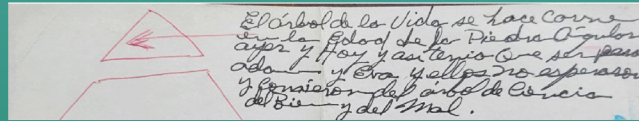 El árbol de la Vida se hace Carne
en la Edad de la Piedra Angular
ayer y Hoy y asi tenia Que ser para
adan y Eva y ellos no esperaron
y comieron del arbol de Ciencia
del Bien y del Mal.